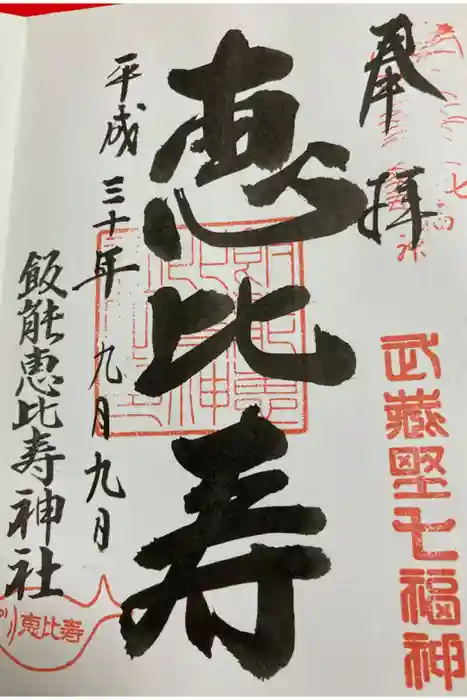 奉拝
武蔵野七福神
恵比寿
平成三十年九月九日
飯能恵比寿神社
恵比寿